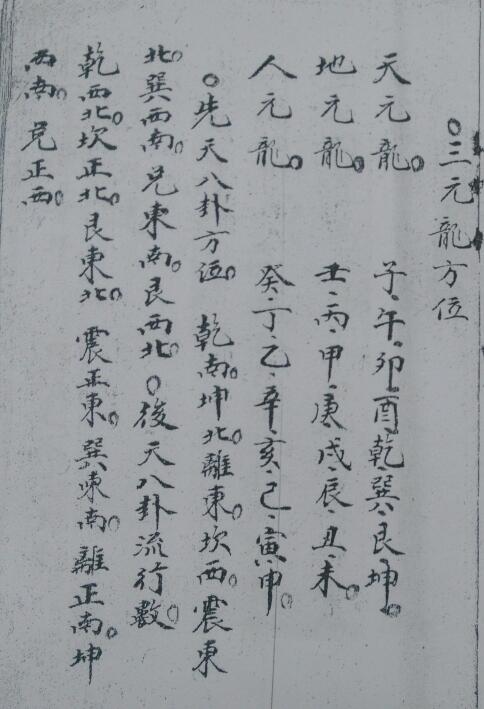 ○三元龍方位
天元龍。 子、午、卯、酉、乾、巽、艮、坤。
地元龍。 壬、丙、甲、庚、戌、辰、丑、未。
人元龍。 癸、丁、乙、辛、亥、巳、寅、申。
○先天八卦方位。 乾南。坤北。離東。坎西。震東
北。巽西南。兌東南。艮西北。○後天八卦流行數。
乾西北。坎正北。艮東北。震正東。巽東南。離正南。坤
西南。兌正西。